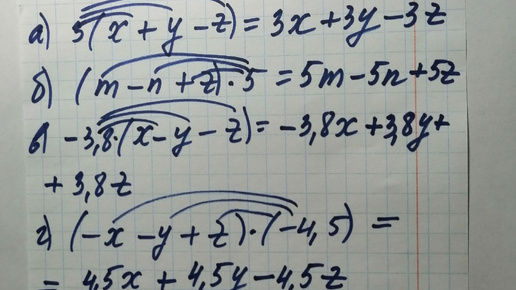 а) 3(x + y - z) = 3x + 3y - 3z
б) (m - n + z) · 5 = 5m - 5n + 5z
в) -3,8 · (x - y - z) = -3,8x + 3,8y +
+ 3,8z
г) (-x - y + z) · (-4,5) =
= 4,5x + 4,5y - 4,5z